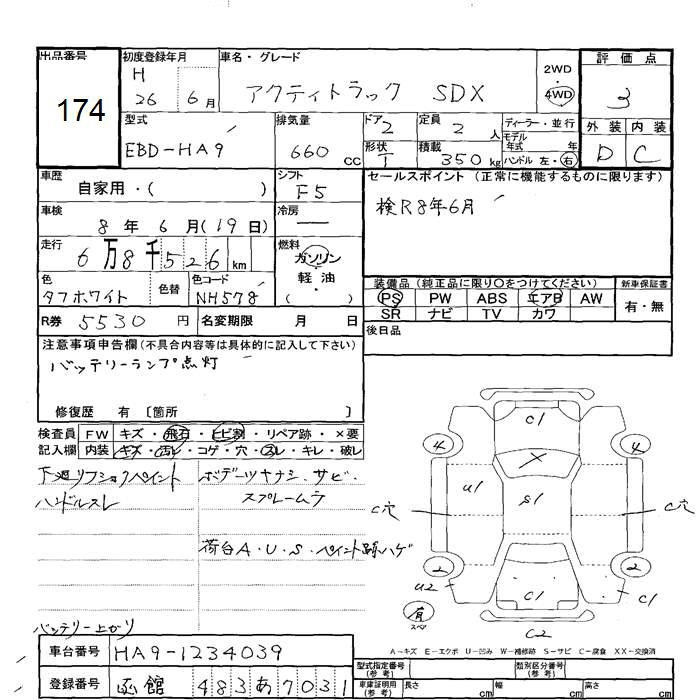 出品番号 174
初度登録年月 H 26 6月
車名・グレード アクティトラック SDX
2WD 4WD
評価点 3
型式 EBD-HA9
排気量 660 CC
ドア 2
形状 T
定員 2 人
積載 350 kg
ディーラー・並行
モデル年式 年
ハンドル 左・右
外装 D 内装 C
車歴 自家用・( )
シフト F5
セールスポイント (正常に機能するものに限ります)
検R8年6月
車検 8年 6月(19日)
冷房 —
走行 6万8千526km
燃料 ガソリン・軽油・( )
色 タフホワイト 色替 色コード NH578
装備品 (純正品に限り○をつけてください) 新車保証書
PS PW ABS エアB AW 有・無
SR ナビ TV カワ
R券 5530円 名変期限 月 日
後日品
注意事項申告欄 (不具合内容等は具体的に記入して下さい)
バッテリーランプ点灯
修復歴 有 〔箇所 〕
検査員記入欄 FW キズ・飛石・ヒビ割・リペア跡・×要
内装 キズ・汚レ・コゲ・穴・スレ・キレ・破レ
下廻リフショクペイント
ハンドルスレ
ボデーツヤナシ、サビ、
スプレームラ
荷台A・U・S・ペイント跡ハゲ
バッテリー上がり
C1
4 4
X
U1 S1
C穴 C穴
2 2
U2 C1 C1
有 スペア
C2
A-キズ E-エクボ U-凹み W-補修跡 S-サビ C-腐食 XX-交換済
車台番号 HA9-1234039
登録番号 函館 483あ7031
型式指定番号(参考) 類別区分番号(参考)
車庫証明用(参考) 長さ cm 幅 cm 高さ cm